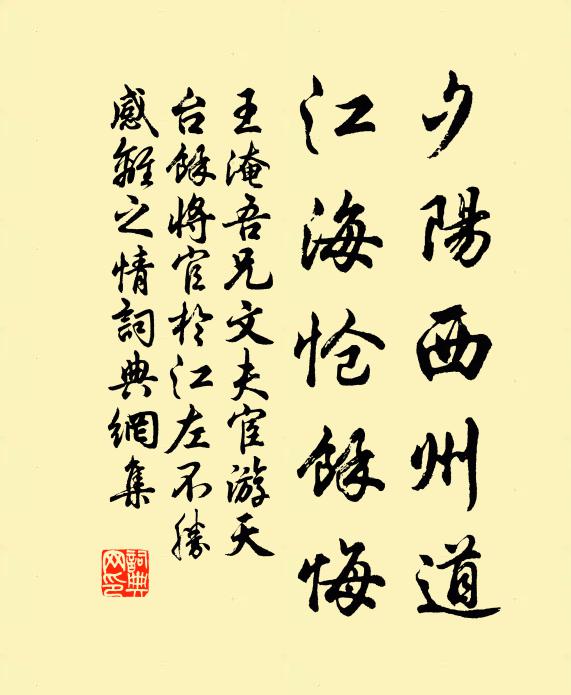 夕陽西州道
江海怆餘悔
王淹吾兄文夫宦游天
台餘將官於江左不勝
感離之情詞典網集
詞典
网印